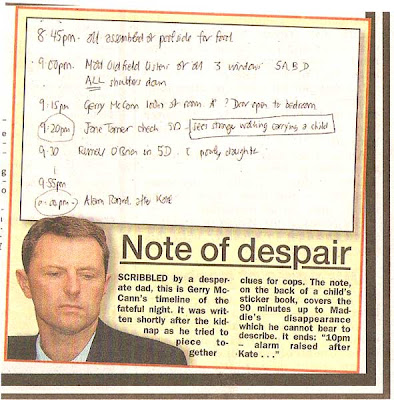 8 45pm. all assembled at poolside for food
9.00pm. Matt Oldfield listens at all 3 windows 5A, B, D
ALL shutters down
9.15pm Gerry McCann looks at room A ? Door open to bedroom
9.20pm Jane Tanner check 5D - sees stranger walking carrying a child
9.30 Russell O'Brien in 5D. poorly daughter
9.55pm
10.00pm Alarm Raised after Kate
Note of despair
SCRIBBLED by a desper-
ate dad, this is Gerry Mc-
Cann's timeline of the
fateful night. It was writ-
ten shortly after the kid-
nap as he tried to
piece to-
gether
clues for cops. The note,
on the back of a child's
sticker book, covers the
90 minutes up to Mad-
die's disappearance
which he cannot bear to
describe. It ends: "10pm
– alarm raised after
Kate . . ."